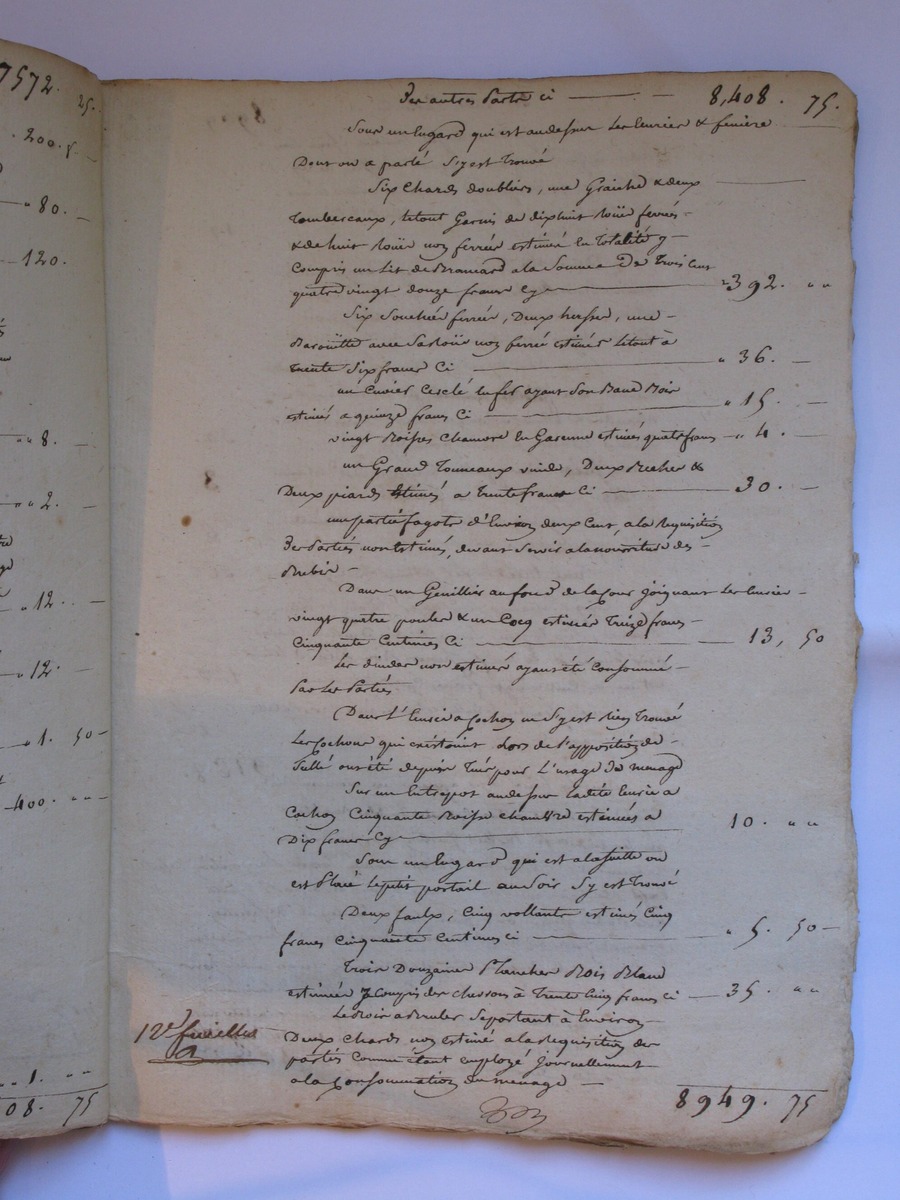 7572. 25.
200. 8.
80. —
120.
" " 8. —
" " 2. —
" 12. —
" 12. —
" 1. 50 —
400. " " —
" 1. " "
08. 75
Des autres Parts ci — 8,408. 75.
Sous un Engard qui est audessus Les Ecurier & feniere
Dont on a parlé S'y est Trouvé
Six Chards doubliers, une Graiche & deux —
Tombereaux, letout Garnis de dixhuit Roüe ferrés —
& de huit Roüe non ferrée estimé En Totalité y —
Compris un Lit de Brancard a la Somme De Trois Cent
quatre vingt douze francs Cy — 392. " "
Six ferrées, Deux herses, une —
Baroüette avec Sa Roüe non ferrée estimés Letout à
Trente Six francs Ci — " 36. —
un Cuvier Cerclé En fer ayant Son Banc Bois
estimés a quinze francs Ci — " 15. —
vingt Chanvre En Garenne estimés quatre francs — " 4. —
un Grand Tonneaux vuide, Deux Beches &
Deux piards Estimés a Trente francs Ci — 30. —
une partie fagots d'Environ deux Cent, a la Requisition
Des Parties non Estimés, devant Servir a la nourriture des —
Brebis —
Dans un Genillier au fond de la Cour joignant Les Ecurier —
vingt quatre poules & un Cocq estimés Treize francs —
Cinquante Centimes Ci — 13, 50
Les dindes non estimés ayant été Consommé —
Par Les Parties
Dans L'Ecurie a Cochon il S'y est Rien Trouvé
Les Cochons qui existoient Lors de l'apposition du —
Sçellé ont été depuis Tué pour L'usage du menage
Sur un Entrepot audessus Ladite Ecurie a
Cochon Cinquante Chanvre estimées a 10. " "
Dix francs Cy —
Sous un Engard qui est a la Suitte ou
est Placé Lepetit portail au Soir S'y est Trouvé
Deux faulx, Cinq vollants estimés Cinq
francs Cinquante Centimes ci — " 5. 50 —
Trois Douzaines Plancher Bois Blanc
estimées y Compris des à Trente Cinq francs Ci — 35. " "
Le Bois a Bruler Se portant à Environ —
12e. fueillet
Deux Chards non estimé a la Requisition des
parties Comme étant employé journellement
a la Consommation du menage —
8949. 75